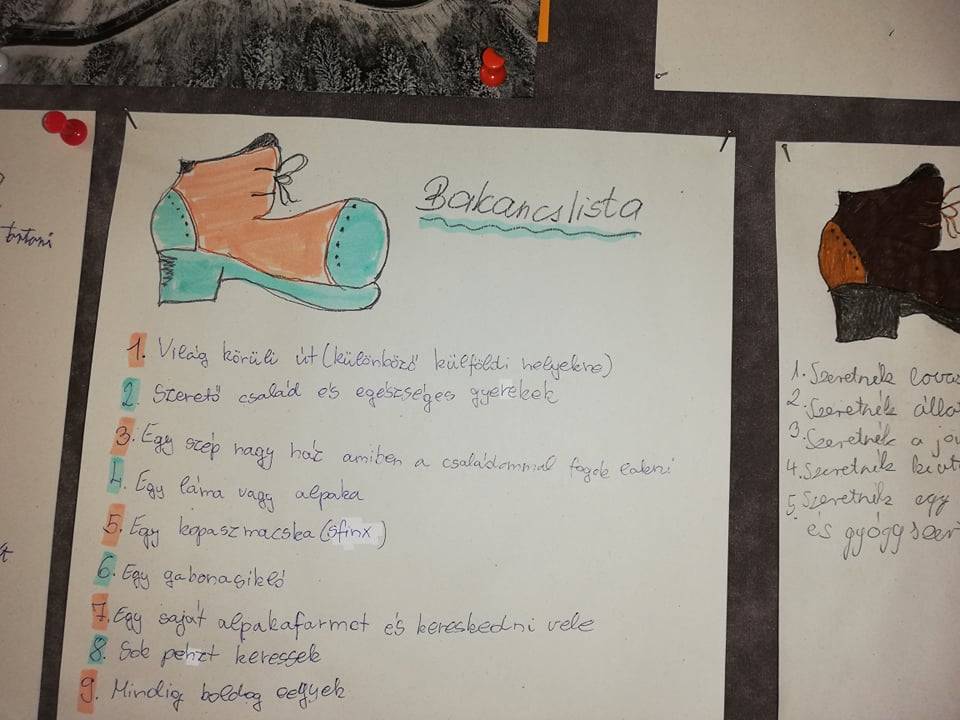 Bakancslista
1. Világ körüli út (különböző külföldi helyekre)
2. Szerető család és egészséges gyerekek
3. Egy szép nagy ház amiben a családommal fogok lakni
4. Egy láma vagy alpaka
5. Egy kopaszmacska (sfinx)
6. Egy gabonasikló
7. Egy saját alpakafarmot és kereskedni vele
8. Sok pénzt keressek
9. Mindig boldog legyek
1. Szeretnék
2. Szeretnék
3. Szeretnék a
4. Szeretnék
5. Szeretnék egy
és